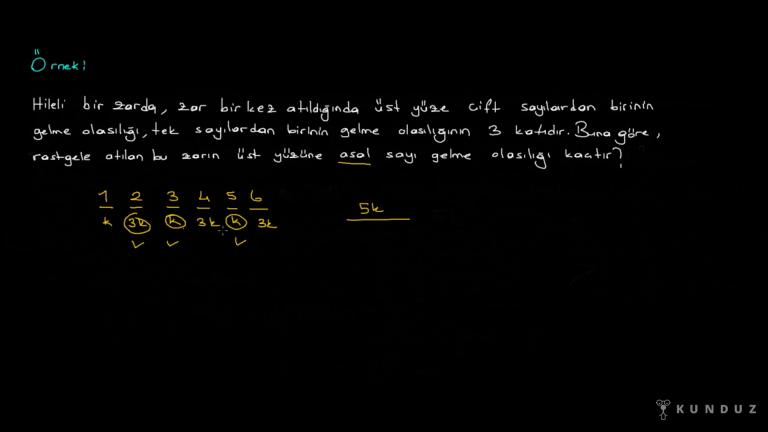 Örnek!
Hileli bir zarda, zar bir kez atıldığında üst yüze çift sayılardan birinin
gelme olasılığı, tek sayılardan birinin gelme olasılığının 3 katıdır. Buna göre,
rastgele atılan bu zarın üst yüzüne asal sayı gelme olasılığı kaçtır?
1 2 3 4 5 6
k 3k k 3k k 3k
5k
KUNDUZ